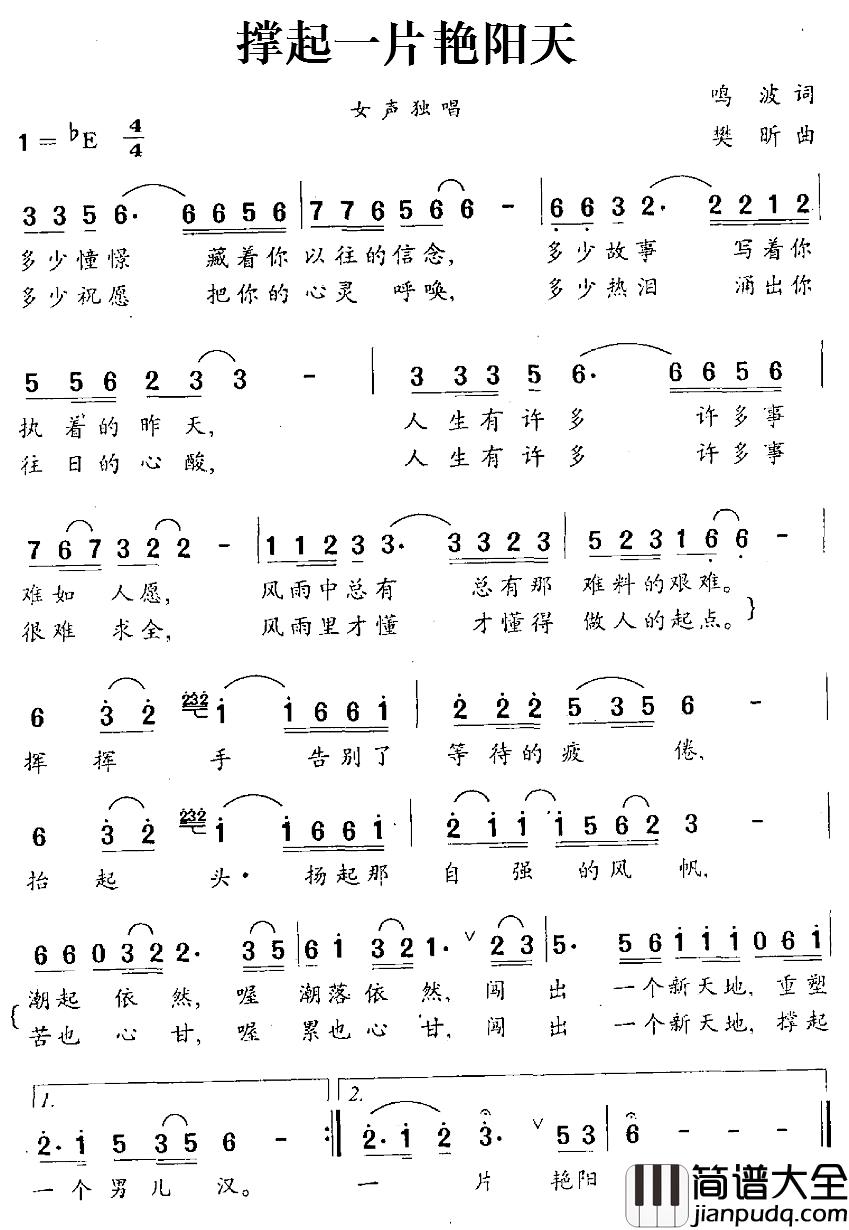 撑起一片艳阳天
女声独唱
鸣波词
1=♭E 4/4
樊昕曲
3 3 5 6· 6 6 5 6 | 7 7 6 5 6 6 - | 6 6 3 2· 2 2 1 2
多少憧憬 藏着你 以往的信念, 多少故事 写着你
多少祝愿 把你的 心灵 呼唤, 多少热泪 涌出你
5 5 6 2 3 3 - | 3 3 3 5 6· 6 6 5 6 |
执着的昨天, 人生有许多 许多事
往日的心酸, 人生有许多 许多事
7 6 7 3 2 2 - | 1 1 2 3 3· 3 3 2 3 | 5 2 3 1 6 6 -
难如 人愿, 风雨中总有 总有那 难料的艰难。
很难 求全, 风雨里才懂 才懂得 做人的起点。}
6 3 2 232 1 1 6 6 1 | 2 2 2 5 3 5 6 -
挥挥手 告别了 等待的疲倦,
6 3 2 232 1 1 6 6 1 | 2 1 1 1 5 6 2 3 - |
抬起头· 扬起那 自强的风帆,
6 6 0 3 2 2· 3 5 | 6 1 3 2 1· ∨ 2 3 | 5· 5 6 1 1 1 0 6 1
潮起 依然, 喔 潮落依然, 闯出 一个新天地, 重塑
{ 苦也 心甘, 喔 累也心甘, 闯出 一个新天地, 撑起
1. 2.
2· 1 5 3 5 6 - :‖ 2· 1 2 3· ∨ 5 3 | 6 - - - ‖
一个男儿汉。 一片 艳阳
简谱大全
jianpudq.com